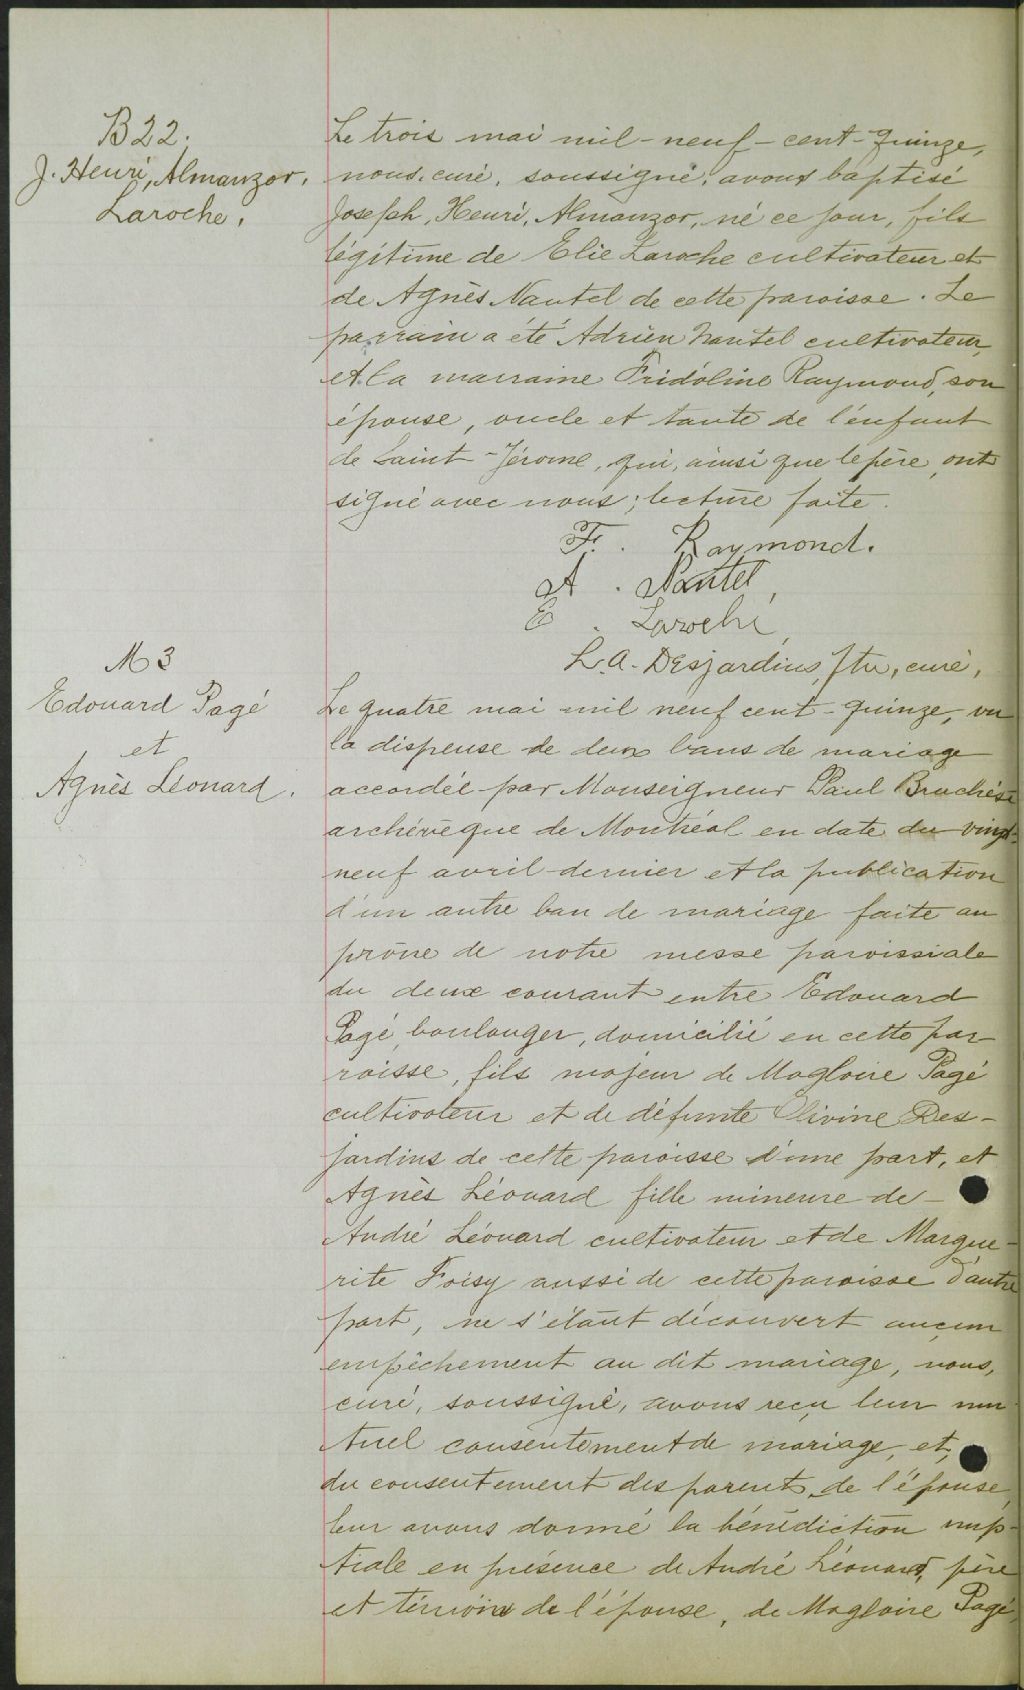 B 22.
J. Henri, Almanzor.
Laroche.
Le trois mai mil-neuf-cent-quinze,
nous, curé, soussigné, avons baptisé
Joseph, Henri, Almanzor, né ce jour, fils
légitime de Elie Laroche cultivateur et
de Agnès Nantel de cette paroisse. Le
parrain a été Adrien Nantel cultivateur,
et la marraine Fridoline Raymond, son
épouse, oncle et tante de l'enfant
de Saint-Jérome, qui, ainsi que le père, ont
signé avec nous; lecture faite.
F. Raymond.
A. Nantel,
E. Laroche
L. A. Desjardins, Ptre, curé,
M 3
Edouard Pagé
et
Agnès Léonard.
Le quatre mai mil neuf cent-quinze, vu
la dispense de deux bans de mariage
accordée par Monseigneur Paul Bruchési
archévêque de Montréal en date du vingt-
neuf avril dernier et la publication
d'un autre ban de mariage faite au
prône de notre messe paroissiale
du deux courant entre Edouard
Pagé, boulanger, domicilié en cette par
roisse, fils majeur de Magloire Pagé
cultivateur et de défunte Olivine Des-
jardins de cette paroisse d'une part, et
Agnès Léonard fille mineure de
André Léonard cultivateur et de Margue-
rite Foisy aussi de cette paroisse d'autre
part, ne s'étant découvert aucun
empêchement au dit mariage, nous,
curé, soussigné, avons reçu leur mu-
tuel consentement de mariage, et,
du consentement des parents de l'épouse,
leur avons donné la bénédiction nup-
tiale en présence de André Léonard, père
et témoin de l'épouse, de Magloire Pagé,